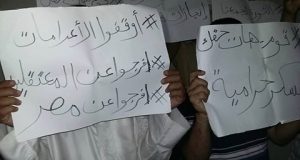 #أوقفوا الأعدامات
#افرجوا عن المعتقلين
#افرجوا عن مصر
قوم هات حقك
عسكر حرامية